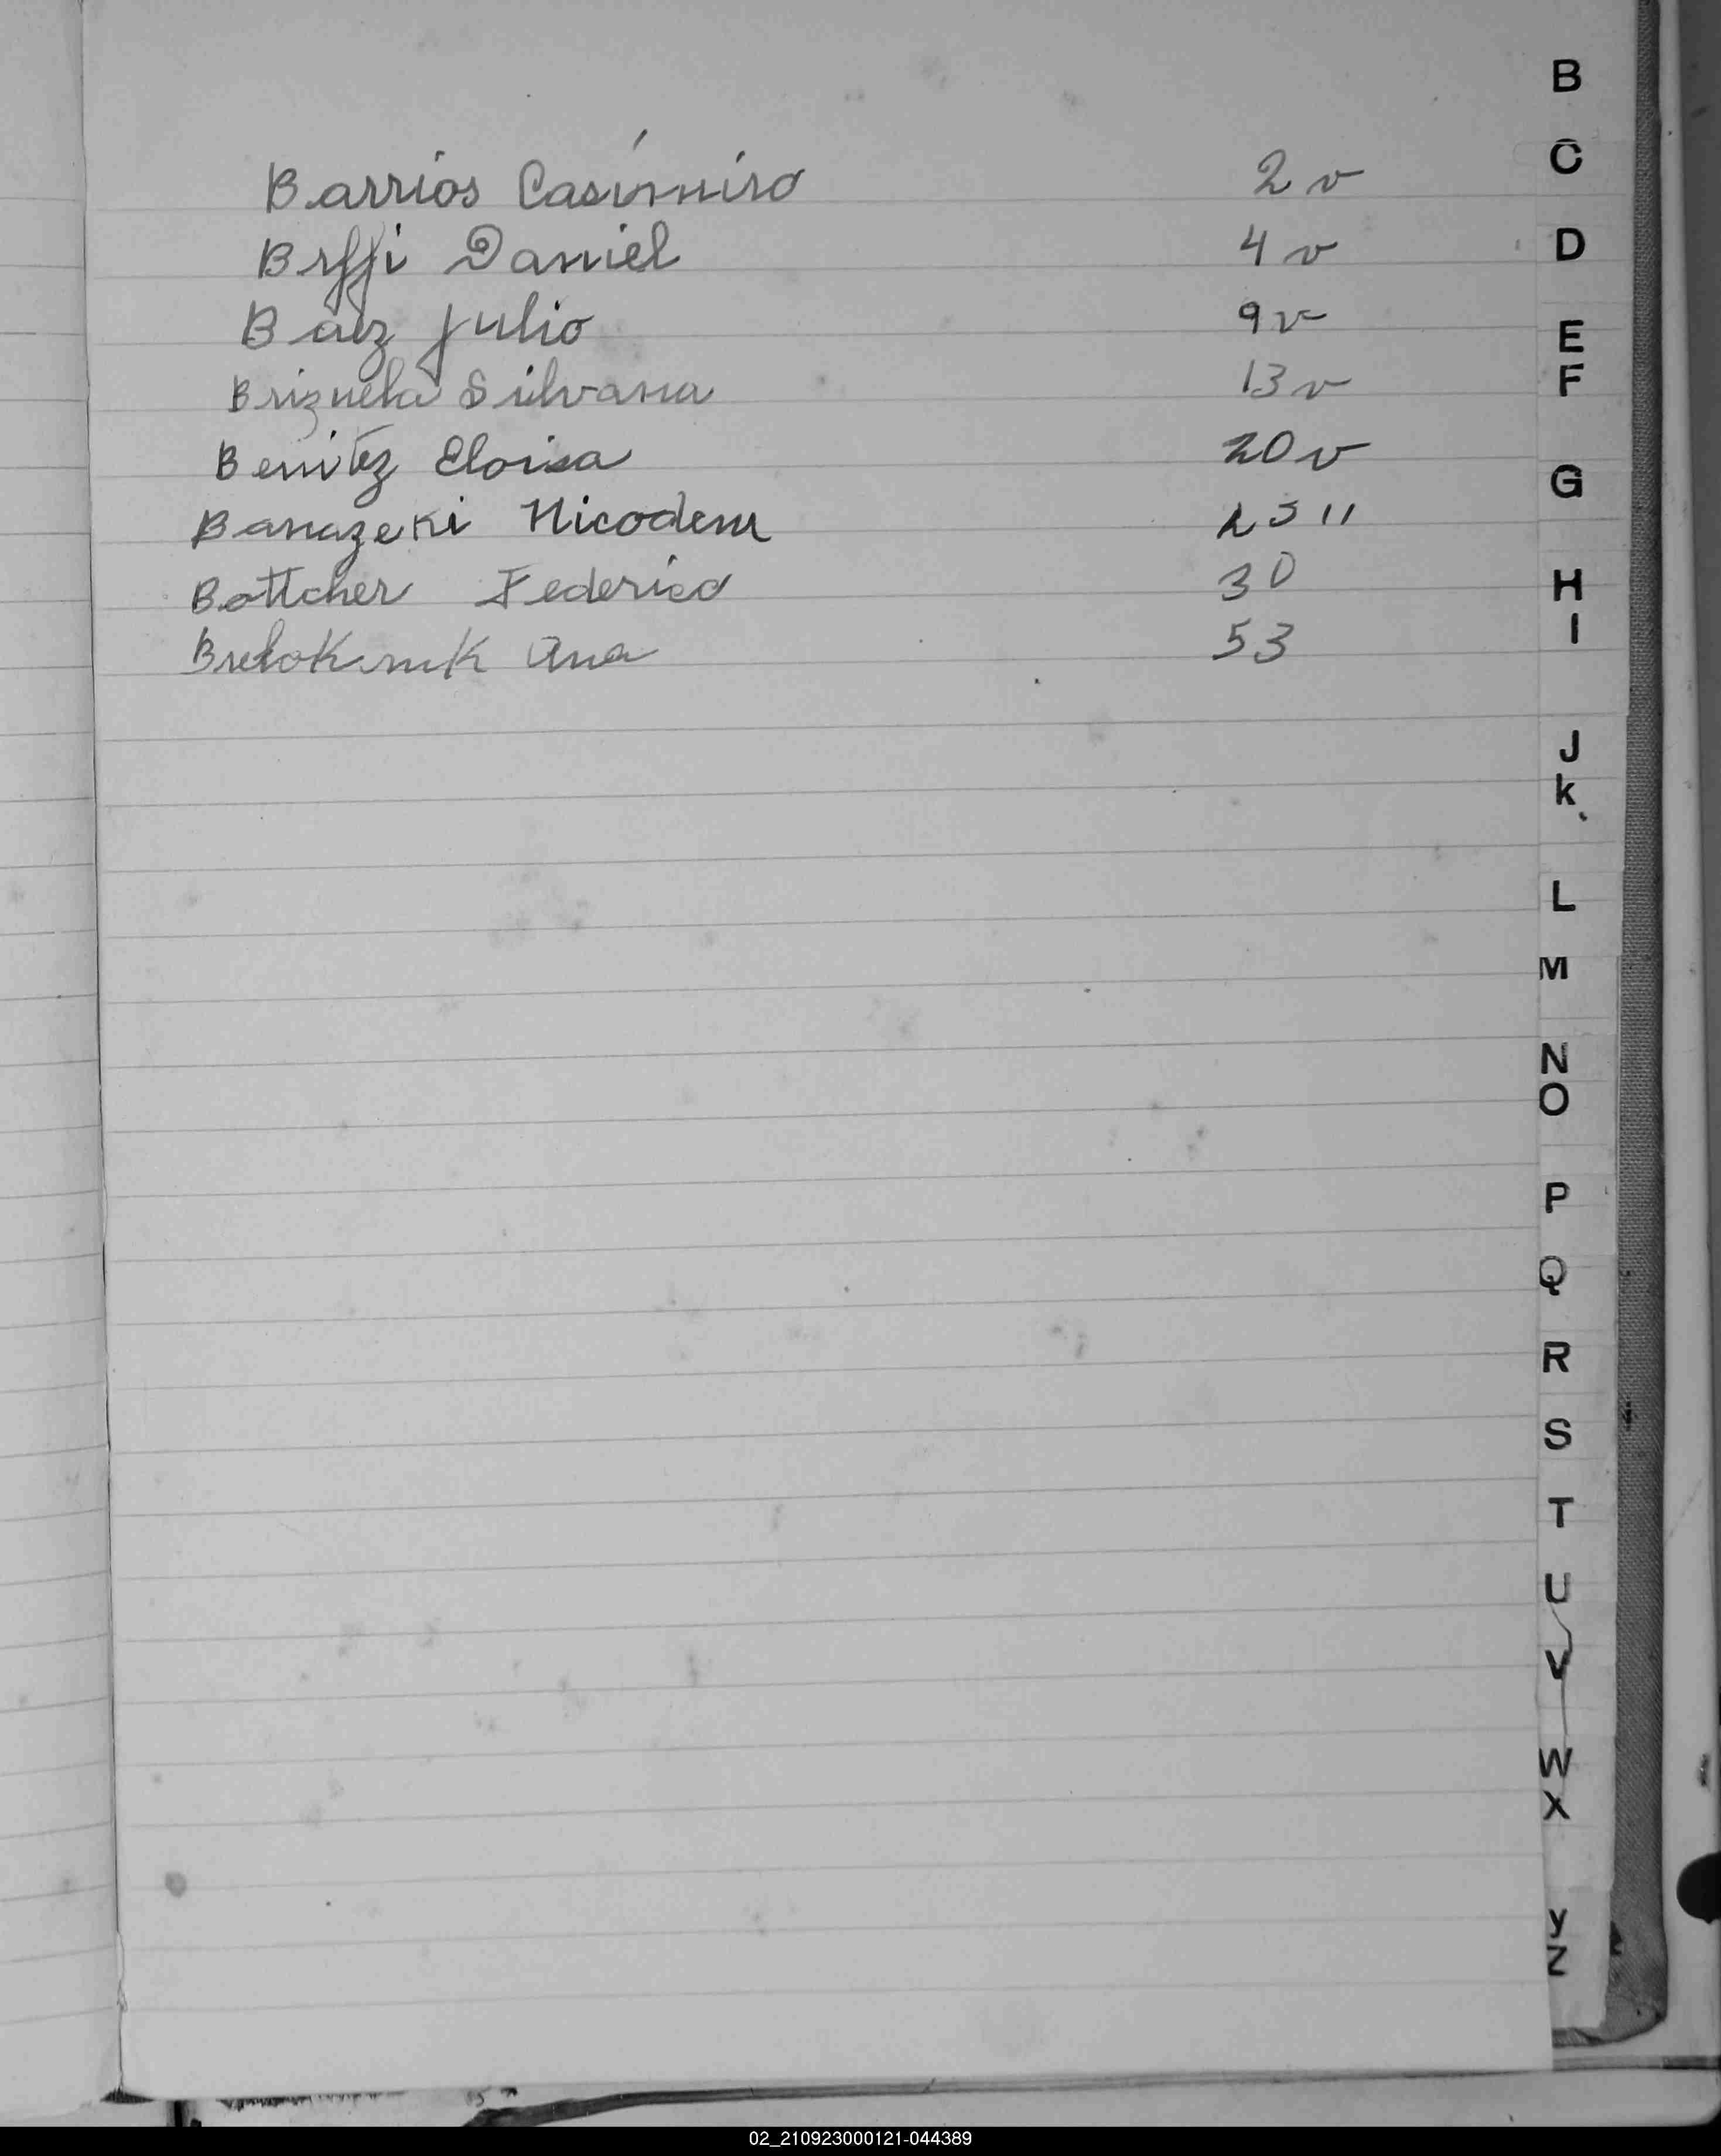 Barrios Casimiro 2 v
Daniel 4 v
Báez Julio 9 v
Brizuela Silvana 13 v
Benitez Eloisa 20 v
Banazeki Nicodem 25 "
Bottcher Federico 30
Ana 53
B
C
D
E
F
G
H
I
J
k
L
M
N
O
P
Q
R
S
T
U
V
W
X
y
Z
02_210923000121-044389